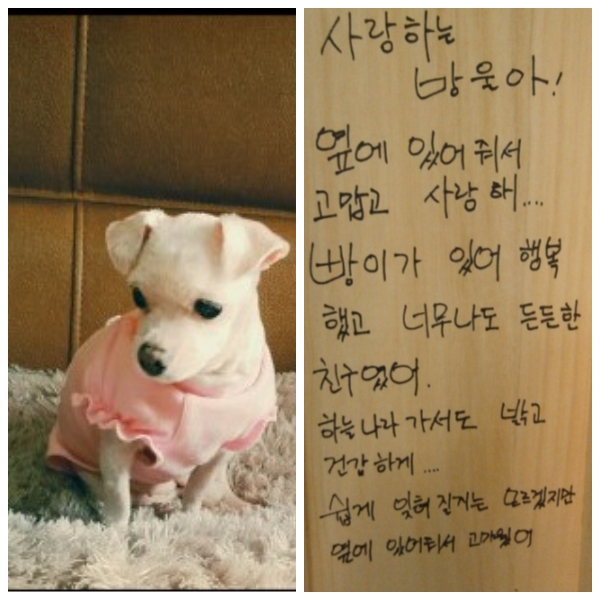 사랑하는
방울아!
옆에 있어 줘서
고맙고 사랑해....
빵이가 있어 행복
했고 너무나도 든든한
친구였어.
하늘나라 가서도 밝고
건강하게....
쉽게 잊혀질지는 모르겠지만
옆에 있어줘서 고마웠어